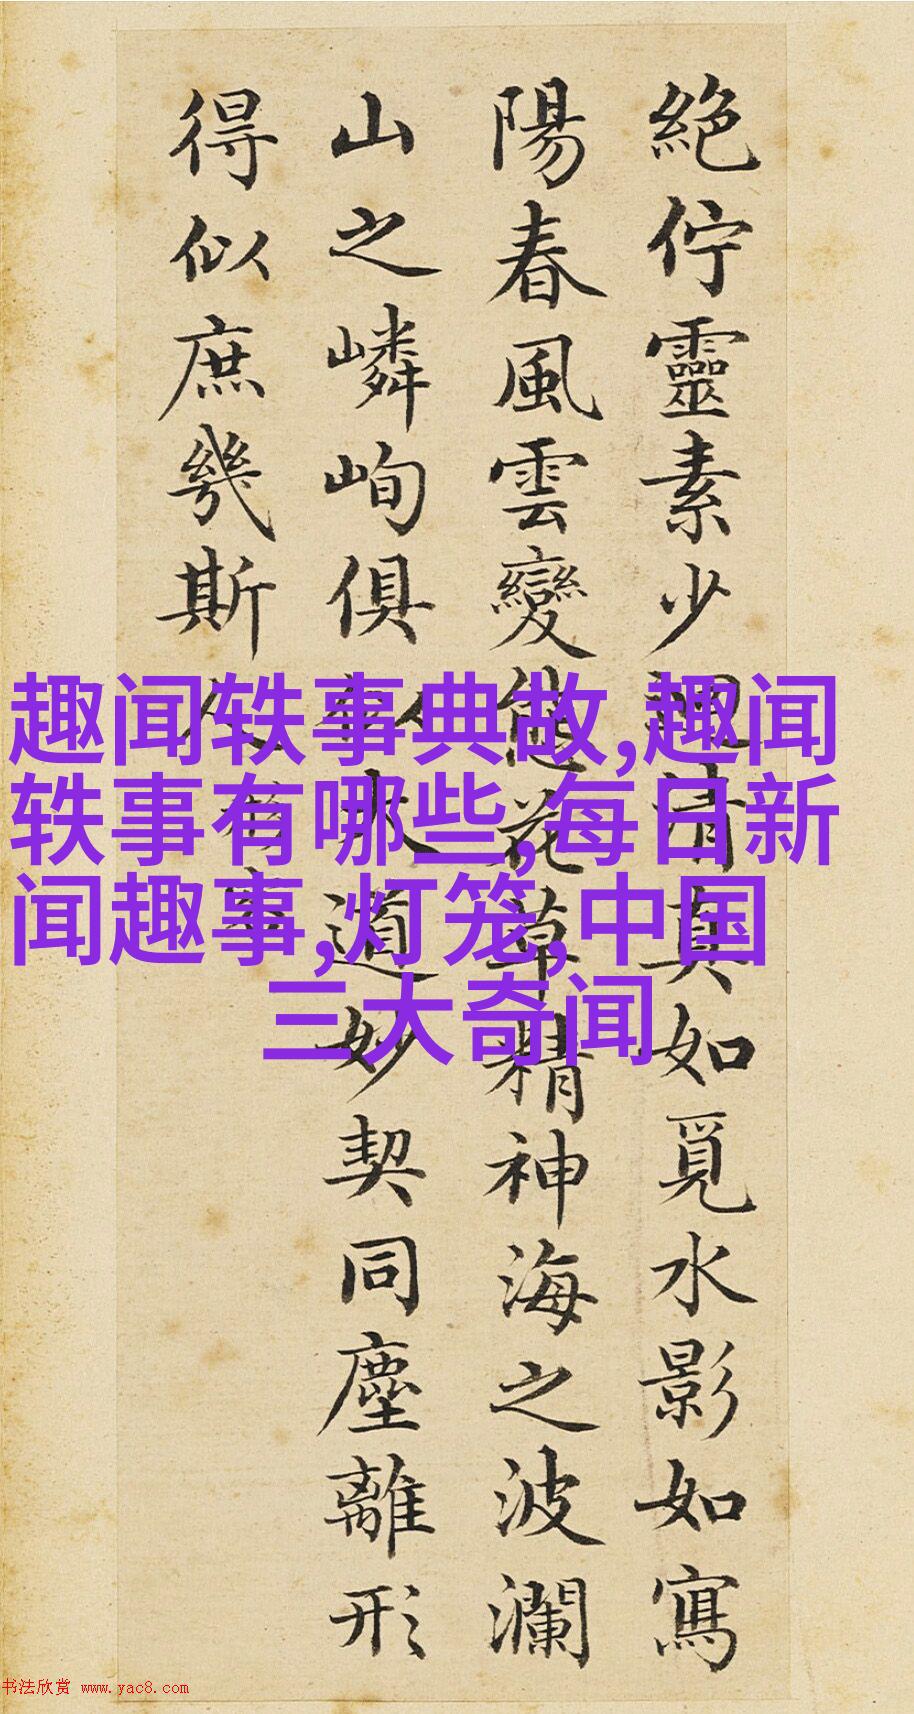 絶佇靈素少迴清真如覓水影如寫
陽春風雲變態花草精神海之波瀾
山之嶙峋俱似大道妙契同塵離形
得似庶幾斯人
趣闻轶事典故,趣闻
轶事有哪些,每日新
闻趣事,灯笼,中国
三大奇闻
书法欣赏 www.yac8.com